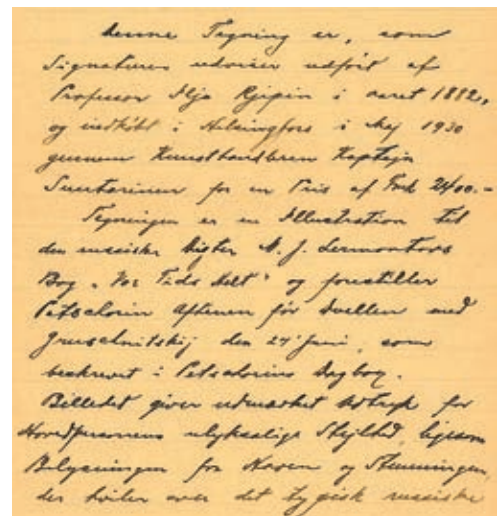 Denne Tegning er, som
Signaturen udviser udført af
Professor Ilja Rjepin i aaret 1882,
og indkøbt i Helsingfors i Maj 1930
gennem Kunsthandleren Kaptajn
for en Pris af Fmk 2400.-
Tegningen er en Illustration til
den russiske Digter M. J. Lermontovs
Bog "Vor Tids Helt" og forestiller
Petschorin Aftenen før Duellen med
Gruschnitskij den 24' Juni, som
beskrevet i Petschorins Dagbog.
Billedet giver udmærket Udtryk for
Hovedpersonens ulyksalige, ligesom
Belysningen fra Haven og Stemningen,
der hviler over det typisk russiske